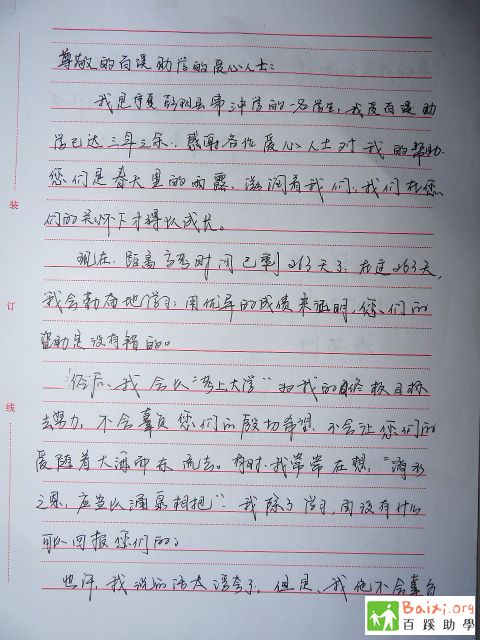 尊敬的百蹊助学的爱心人士:
我是宁夏彭阳县第三中学的一名学生,我受百蹊助
学已达三年之余,感谢各位爱心人士对我的帮助.
您们是春天里的雨露,滋润着我们,我们在您
们的关怀下才得以成长。
现在,距离高考时间已剩263天了.在这263天,
我会勤奋地学习,用优异的成绩来证明,您们的
帮助是没有错的。
今后、我会以“考上大学”为我的最终极目标
去努力,不会辜负您们的殷切希望.不会让您们的
爱随着大河而东流去。有时.我常常在想,“滴水
之恩,应当以涌泉相报”.我除了学习,因没有什么
可以回报您们的;
也许,我说的话太深奇了.但是、我他不会辜负
装
订
线
Baixi.org
百蹊助學